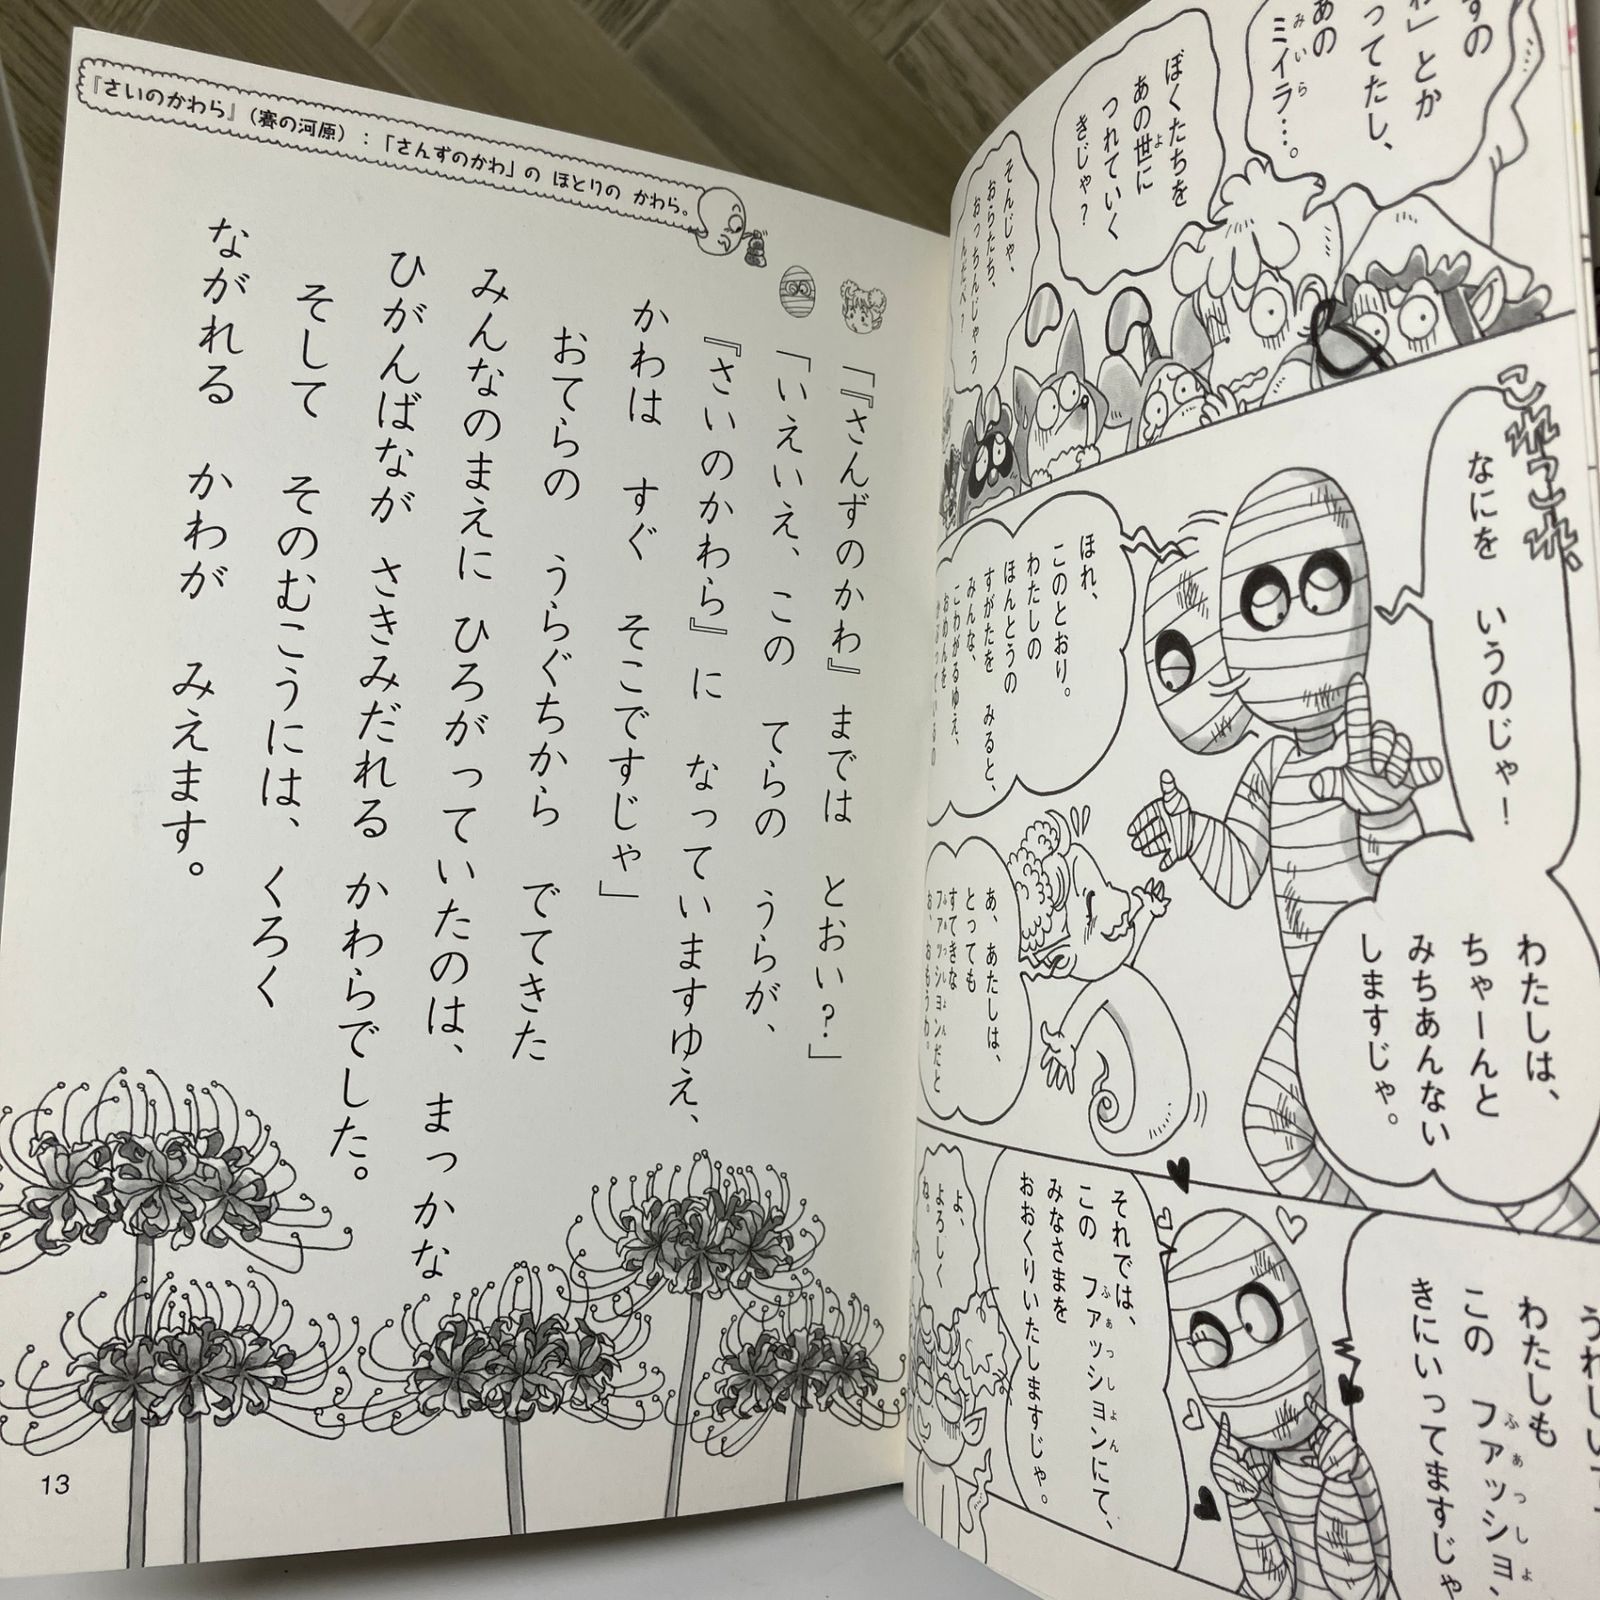 『さいのかわら』（賽の河原）：「さんずのかわ」の ほとりの かわら。
「『さんずのかわ』までは とおい？」
「いえいえ、この てらの うらが、
『さいのかわら』に なっていますゆえ、
かわは すぐ そこですじゃ」
おてらの うらぐちから でてきた
みんなのまえに ひろがっていたのは、まっかな
ひがんばなが さきみだれる かわらでした。
そして そのむこうには、くろく
ながれる かわが みえます。
13
ずの
わ」とか
ってたし、
あの
ミイラ…。
みいら
ぼくたちを
あの世に
よ
つれていく
きじゃ？
そんじゃ、
おらたち、
おっちんじゃう
んだべ？
これこれ、
なにを いうのじゃ！
わたしは、
ちゃーんと
みちあんない
しますじゃ。
ほれ、
このとおり。
わたしの
ほんとうの
すがたを みると、
みんな、
こわがるゆえ、
おめんを
あ、あたしは、
とっても
すてきな
ファッションだと
ふぁっしょん
お、おもうわ。
うれしい
わたしも
この ファッショ
ふぁっしょ
きにいってますじゃ
それでは、
この ファッションにて、
ふぁっしょん
みなさまを
おおくりいたしますじゃ。
よ、
よろしく
ね。